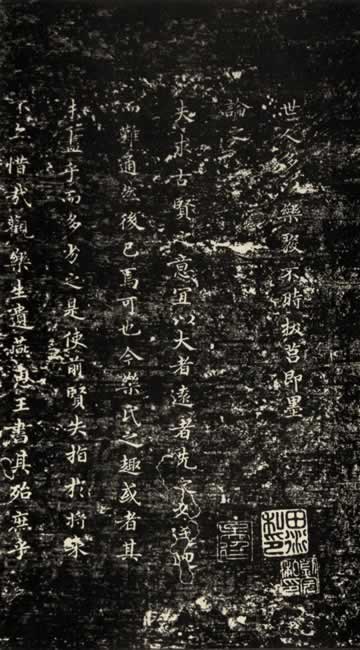 世人多以樂毅不時拔莒即墨
論之
夫求古賢之意宜以大者遠者先之必迂迴
而難通然後已焉可也今樂氏之趣或者其
未盡乎而多劣之是使前賢失指於將來
不亦惜哉觀樂生遺燕惠王書其殆庶乎